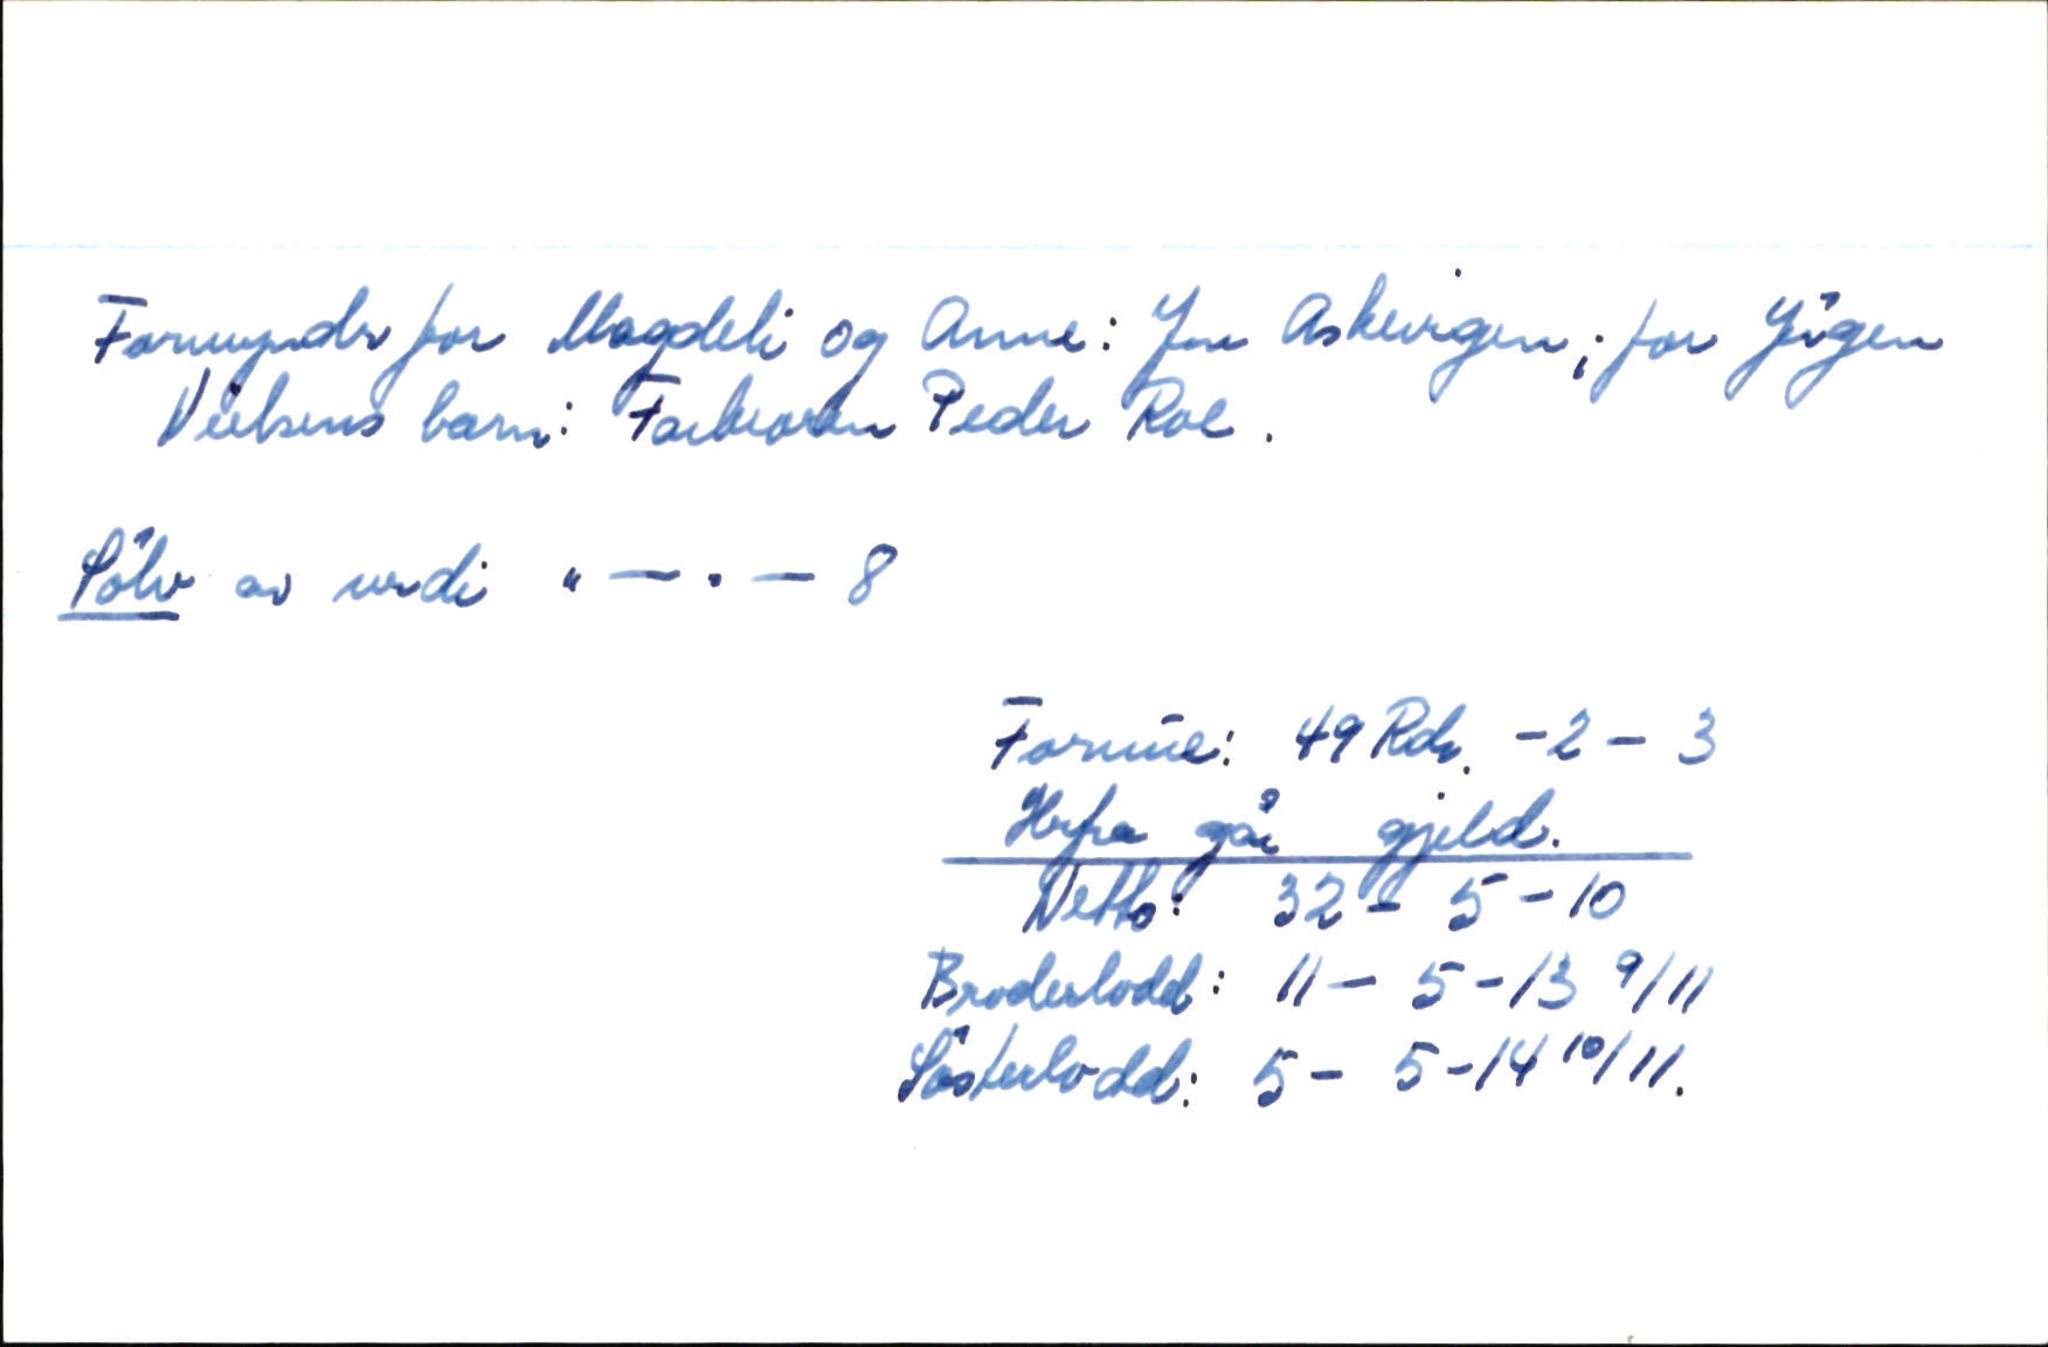 Formynder for Magdeli og Anne: Jon Askevigen; for Jörgen
Nielsens barn: Farbroren Peder Roe.
Sölv av verdi " — " — 8
Formue: 49 Rdr. - 2 - 3
Herfra går gjeld.
Netto: 32 - 5 - 10
Broderlodd: 11 - 5 - 13 9/11
Sösterlodd: 5 - 5 - 14 10/11.